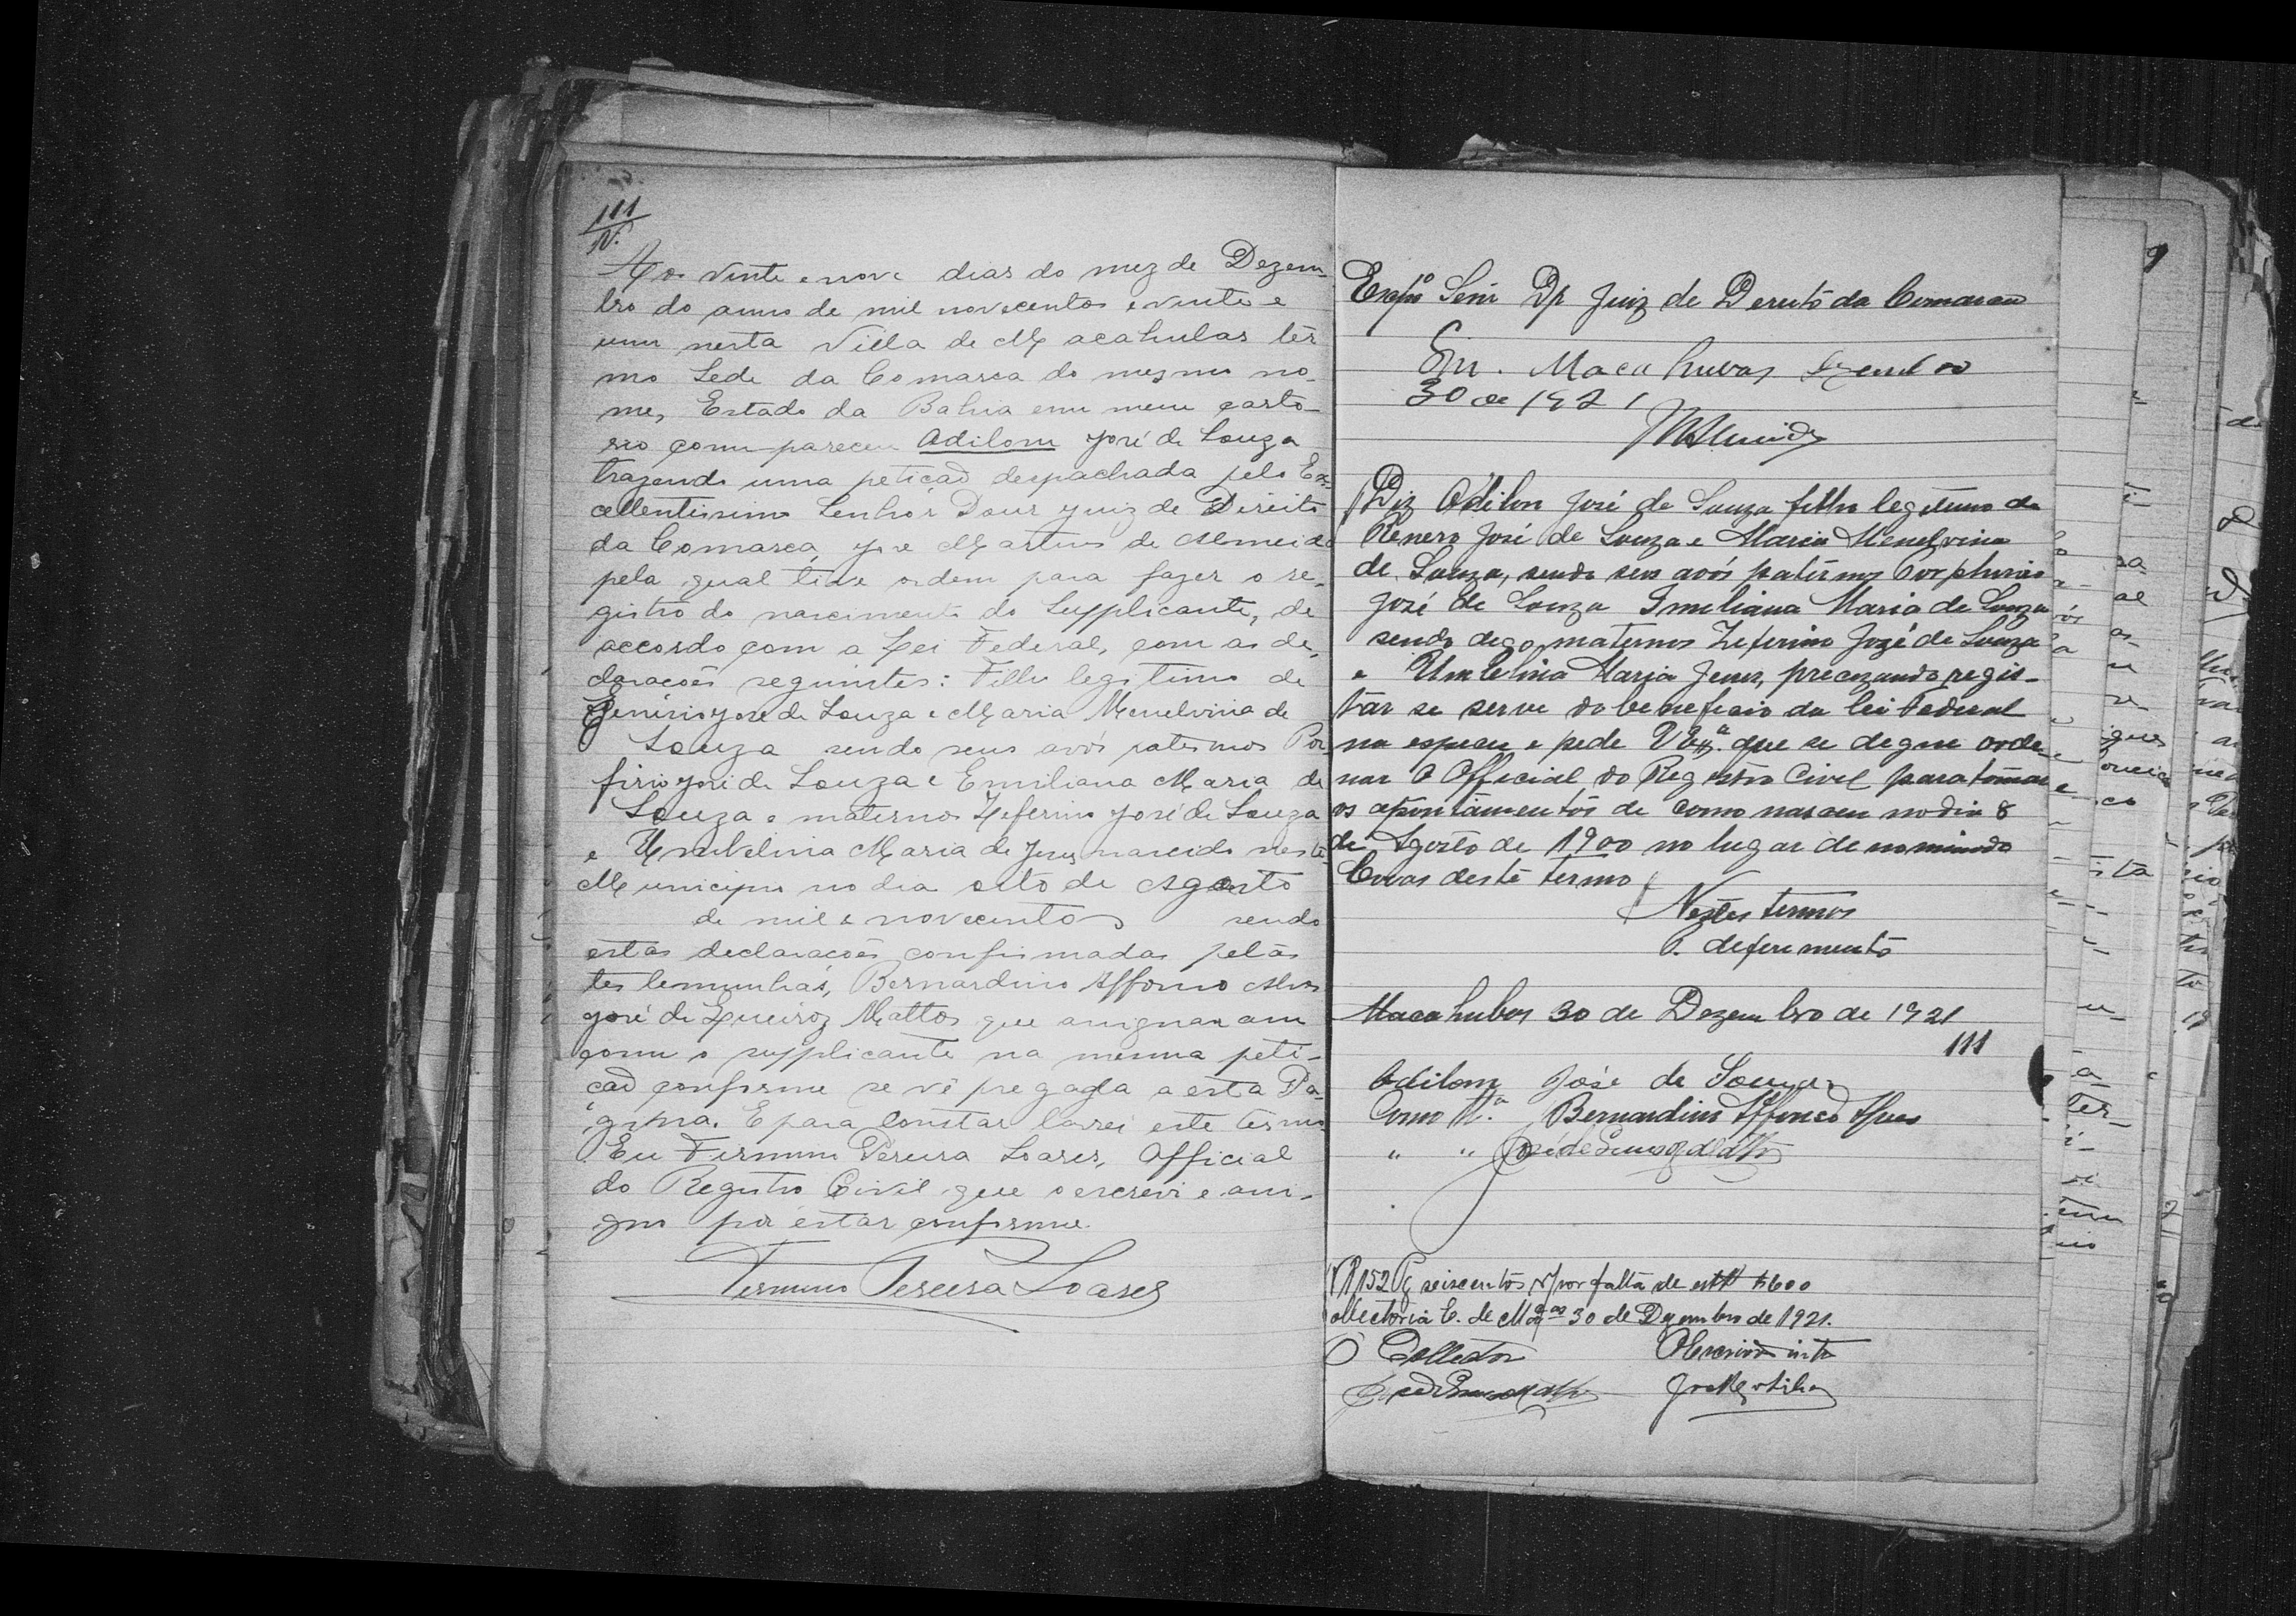 111
N.
Aos vinte e nove dias do mez de Dezem-
bro do anno de mil novecentos e vinte e
um nesta Villa de Macahubas ter
mo Sede da Comarca do mesmo no-
me, Estado da Bahia em meu carto-
rio compareceu Adilom José de Souza
trazendo uma petição despachada pelo Ex-
cellentissimo Senhor Dour Juiz de Direito
da Comarca, José Martins de Almeida
pela qual tive ordem para fazer o re-
gistro do nascimento do Supplicante, de
accordo com a Lei Federal, com as de-
clarações seguintes: Filho legitimo de
José de Souza e Maria Menelvina de
Souza sendo seus avós paternos Por
firio José de Souza e Emiliana Maria de
Souza e maternos Zeferino José de Souza
e Umbelina Maria de Jesus nascido neste
Municipio no dia oito de Agosto
de mil e novecentos sendo
estas declarações confirmadas pelas
testemunhas, Bernardino Affonso Alves
José de Queiroz Mattos que assignaram
com o supplicante na mesma peti-
ção conforme se vê pregada a esta Pa-
gina. E para constar lavrei este termo
Eu Firmino Pereira Soares, Official
do Registro Civil que o escrevi e assi-
gno por estar conforme.
Firmino Pereira Soares
Exmo Senr Dr Juiz de Dereito da Comarca
Macahubas
30 de 1921
Diz Odilon José de Souza filho legitimo de
José de Souza e Maria Menelvina
de Souza, sendo seus avós paternos
José de Souza Imiliana Maria de Souza
sendo digo maternos Zeferino José de Souza
e Umbelina Maria Jesus, precizando regis-
tar se serve do beneficio da lei Federal
e pede VExa. que se digne orde
nar O Official do Registro Civil para tomar
os apontamentos de como nasceu no dia 8
de Agosto de 1900 no lugar de nominado
Covas deste termo
Nestes termos
P. deferimento
Macahubas 30 de Dezembro de 1921
111
Odilom José de Souza
Como Ta. Bernardino Affonso Alves
" " José de Queiroz Mattos
152 Pg seiscentos rs por falta de $600
ollectoria E. de 30 de Dezembro de 1921.
O Collector O Escrivão